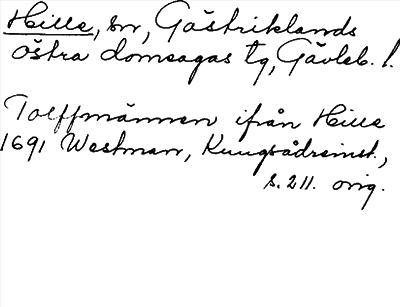 Hille, sn, Gästriklands
östra domsagas tg, Gävleb. l.
Tolffmännen ifrån Hille
1691 Westman, Kungsådreinst.,
s. 211. orig.